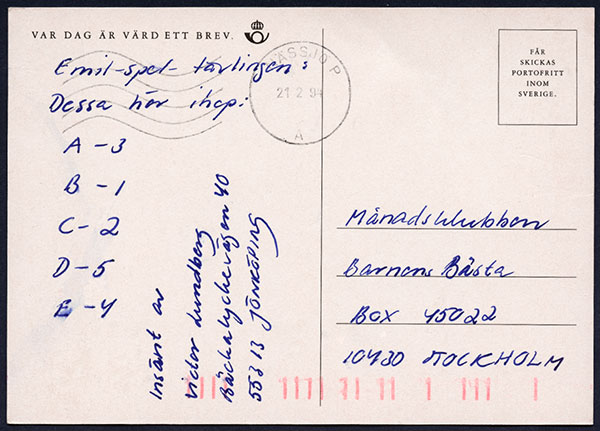 VAR DAG ÄR VÄRD ETT BREV.
ÄSSJÖ P
21 2 94
A
FÅR
SKICKAS
PORTOFRITT
INOM
SVERIGE.
Emil-spel-tävlingen:
Dessa hör ihop:
A - 3
B - 1
C - 2
D - 5
E - 4
Insänt av
Victor Lundberg
Bäckalyckevägen 40
553 13 JÖNKÖPING
Månadsklubben
Barnens Bästa
Box 45022
10430 STOCKHOLM